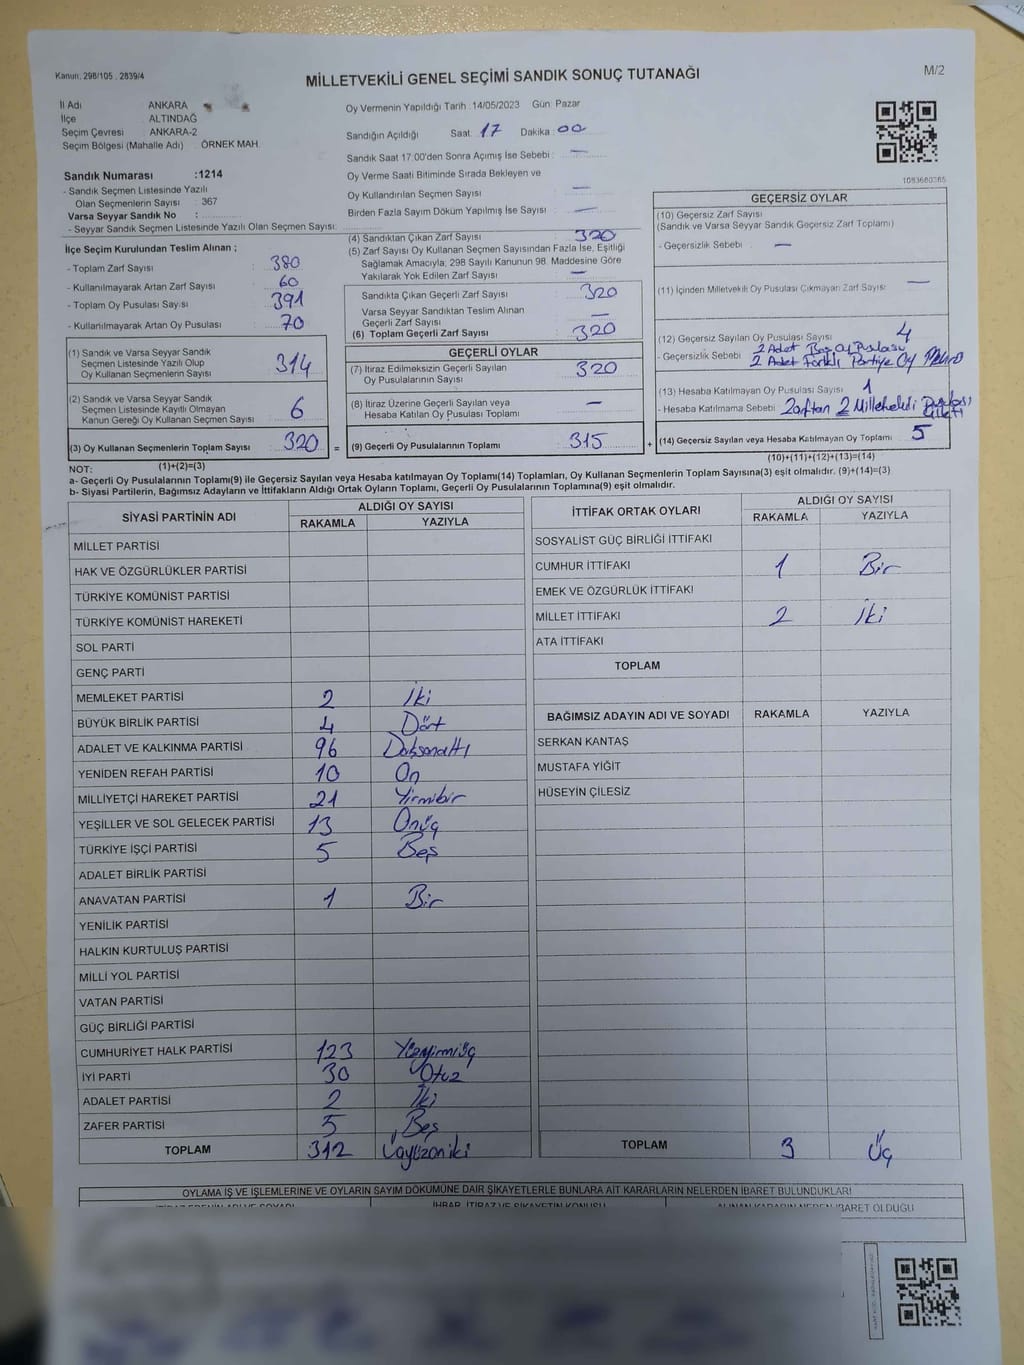 Kanun: 298/105 , 2839/4
MİLLETVEKİLİ GENEL SEÇİMİ SANDIK SONUÇ TUTANAĞI
M/2
İl Adı ANKARA
İlçe ALTINDAĞ
Seçim Çevresi ANKARA-2
Seçim Bölgesi (Mahalle Adı) ÖRNEK MAH.
Sandık Numarası :1214
- Sandık Seçmen Listesinde Yazılı
Olan Seçmenlerin Sayısı : 367
Varsa Seyyar Sandık No :
- Seyyar Sandık Seçmen Listesinde Yazılı Olan Seçmen Sayısı:
Oy Vermenin Yapıldığı Tarih :14/05/2023 Gün: Pazar
Sandığın Açıldığı Saat: 17 Dakika: 00
Sandık Saat 17:00'den Sonra Açımış İse Sebebi : —
Oy Verme Saati Bitiminde Sırada Bekleyen ve
Oy Kullandırılan Seçmen Sayısı : —
Birden Fazla Sayım Döküm Yapılmış İse Sayısı : —
İlçe Seçim Kurulundan Teslim Alınan ;
- Toplam Zarf Sayısı : 380
- Kullanılmayarak Artan Zarf Sayısı : 60
- Toplam Oy Pusulası Sayısı : 391
- Kullanılmayarak Artan Oy Pusulası : 70
(1) Sandık ve Varsa Seyyar Sandık
Seçmen Listesinde Yazılı Olup
Oy Kullanan Seçmenlerin Sayısı : 314
(2) Sandık ve Varsa Seyyar Sandık
Seçmen Listesinde Kayıtlı Olmayan
Kanun Gereği Oy Kullanan Seçmen Sayısı : 6
(3) Oy Kullanan Seçmenlerin Toplam Sayısı : 320 =
(1)+(2)=(3)
(4) Sandıktan Çıkan Zarf Sayısı : 320
(5) Zarf Sayısı Oy Kullanan Seçmen Sayısından Fazla İse, Eşitliği
Sağlamak Amacıyla; 298 Sayılı Kanunun 98. Maddesine Göre
Yakılarak Yok Edilen Zarf Sayısı : —
Sandıkta Çıkan Geçerli Zarf Sayısı : 320
Varsa Seyyar Sandıktan Teslim Alınan
Geçerli Zarf Sayısı : —
(6) Toplam Geçerli Zarf Sayısı : 320
GEÇERLİ OYLAR
(7) İtiraz Edilmeksizin Geçerli Sayılan
Oy Pusulalarının Sayısı : 320
(8) İtiraz Üzerine Geçerli Sayılan veya
Hesaba Katılan Oy Pusulası Toplamı : —
(9) Geçerli Oy Pusulalarının Toplamı : 315 +
1083680765
GEÇERSİZ OYLAR
(10) Geçersiz Zarf Sayısı
(Sandık ve Varsa Seyyar Sandık Geçersiz Zarf Toplamı)
- Geçersizlik Sebebi : —
(11) İçinden Milletvekili Oy Pusulası Çıkmayan Zarf Sayısı : —
(12) Geçersiz Sayılan Oy Pusulası Sayısı : 4
- Geçersizlik Sebebi : 2 Adet Boş Oy Pusulası
2 Adet Farklı Partiye Oy
(13) Hesaba Katılmayan Oy Pusulası Sayısı : 1
- Hesaba Katılmama Sebebi : Zarftan 2 Milletvekili Pusulası
(14) Geçersiz Sayılan veya Hesaba Katılmayan Oy Toplamı : 5
(10)+(11)+(12)+(13)=(14)
NOT:
a- Geçerli Oy Pusulalarının Toplamı(9) ile Geçersiz Sayılan veya Hesaba katılmayan Oy Toplamı(14) Toplamları, Oy Kullanan Seçmenlerin Toplam Sayısına(3) eşit olmalıdır. (9)+(14)=(3)
b- Siyasi Partilerin, Bağımsız Adayların ve İttifakların Aldığı Ortak Oyların Toplamı, Geçerli Oy Pusulalarının Toplamına(9) eşit olmalıdır.
SİYASİ PARTİNİN ADI
ALDIĞI OY SAYISI
RAKAMLA YAZIYLA
MİLLET PARTİSİ
HAK VE ÖZGÜRLÜKLER PARTİSİ
TÜRKİYE KOMÜNİST PARTİSİ
TÜRKİYE KOMÜNİST HAREKETİ
SOL PARTİ
GENÇ PARTİ
MEMLEKET PARTİSİ 2 İki
BÜYÜK BİRLİK PARTİSİ 4 Dört
ADALET VE KALKINMA PARTİSİ 96 Doksanaltı
YENİDEN REFAH PARTİSİ 10 On
MİLLİYETÇİ HAREKET PARTİSİ 21 Yirmibir
YEŞİLLER VE SOL GELECEK PARTİSİ 13 Onüç
TÜRKİYE İŞÇİ PARTİSİ 5 Beş
ADALET BİRLİK PARTİSİ
ANAVATAN PARTİSİ 1 Bir
YENİLİK PARTİSİ
HALKIN KURTULUŞ PARTİSİ
MİLLİ YOL PARTİSİ
VATAN PARTİSİ
GÜÇ BİRLİĞİ PARTİSİ
CUMHURİYET HALK PARTİSİ 123 Yüzyirmiüç
İYİ PARTİ 30 Otuz
ADALET PARTİSİ 2 İki
ZAFER PARTİSİ 5 Beş
TOPLAM 312 Üçyüzoniki
İTTİFAK ORTAK OYLARI
ALDIĞI OY SAYISI
RAKAMLA YAZIYLA
SOSYALİST GÜÇ BİRLİĞİ İTTİFAKI
CUMHUR İTTİFAKI 1 Bir
EMEK VE ÖZGÜRLÜK İTTİFAKI
MİLLET İTTİFAKI 2 İki
ATA İTTİFAKI
TOPLAM
BAĞIMSIZ ADAYIN ADI VE SOYADI RAKAMLA YAZIYLA
SERKAN KANTAŞ
MUSTAFA YİĞİT
HÜSEYİN ÇİLESİZ
TOPLAM 3 Üç
OYLAMA İŞ VE İŞLEMLERİNE VE OYLARIN SAYIM DÖKÜMÜNE DAİR ŞİKAYETLERLE BUNLARA AİT KARARLARIN NELERDEN İBARET BULUNDUKLARI
İHBAR, İTİRAZ VE ŞİKAYETİN KONUSU
ALINAN KARARIN NEDEN İBARET OLDUĞU